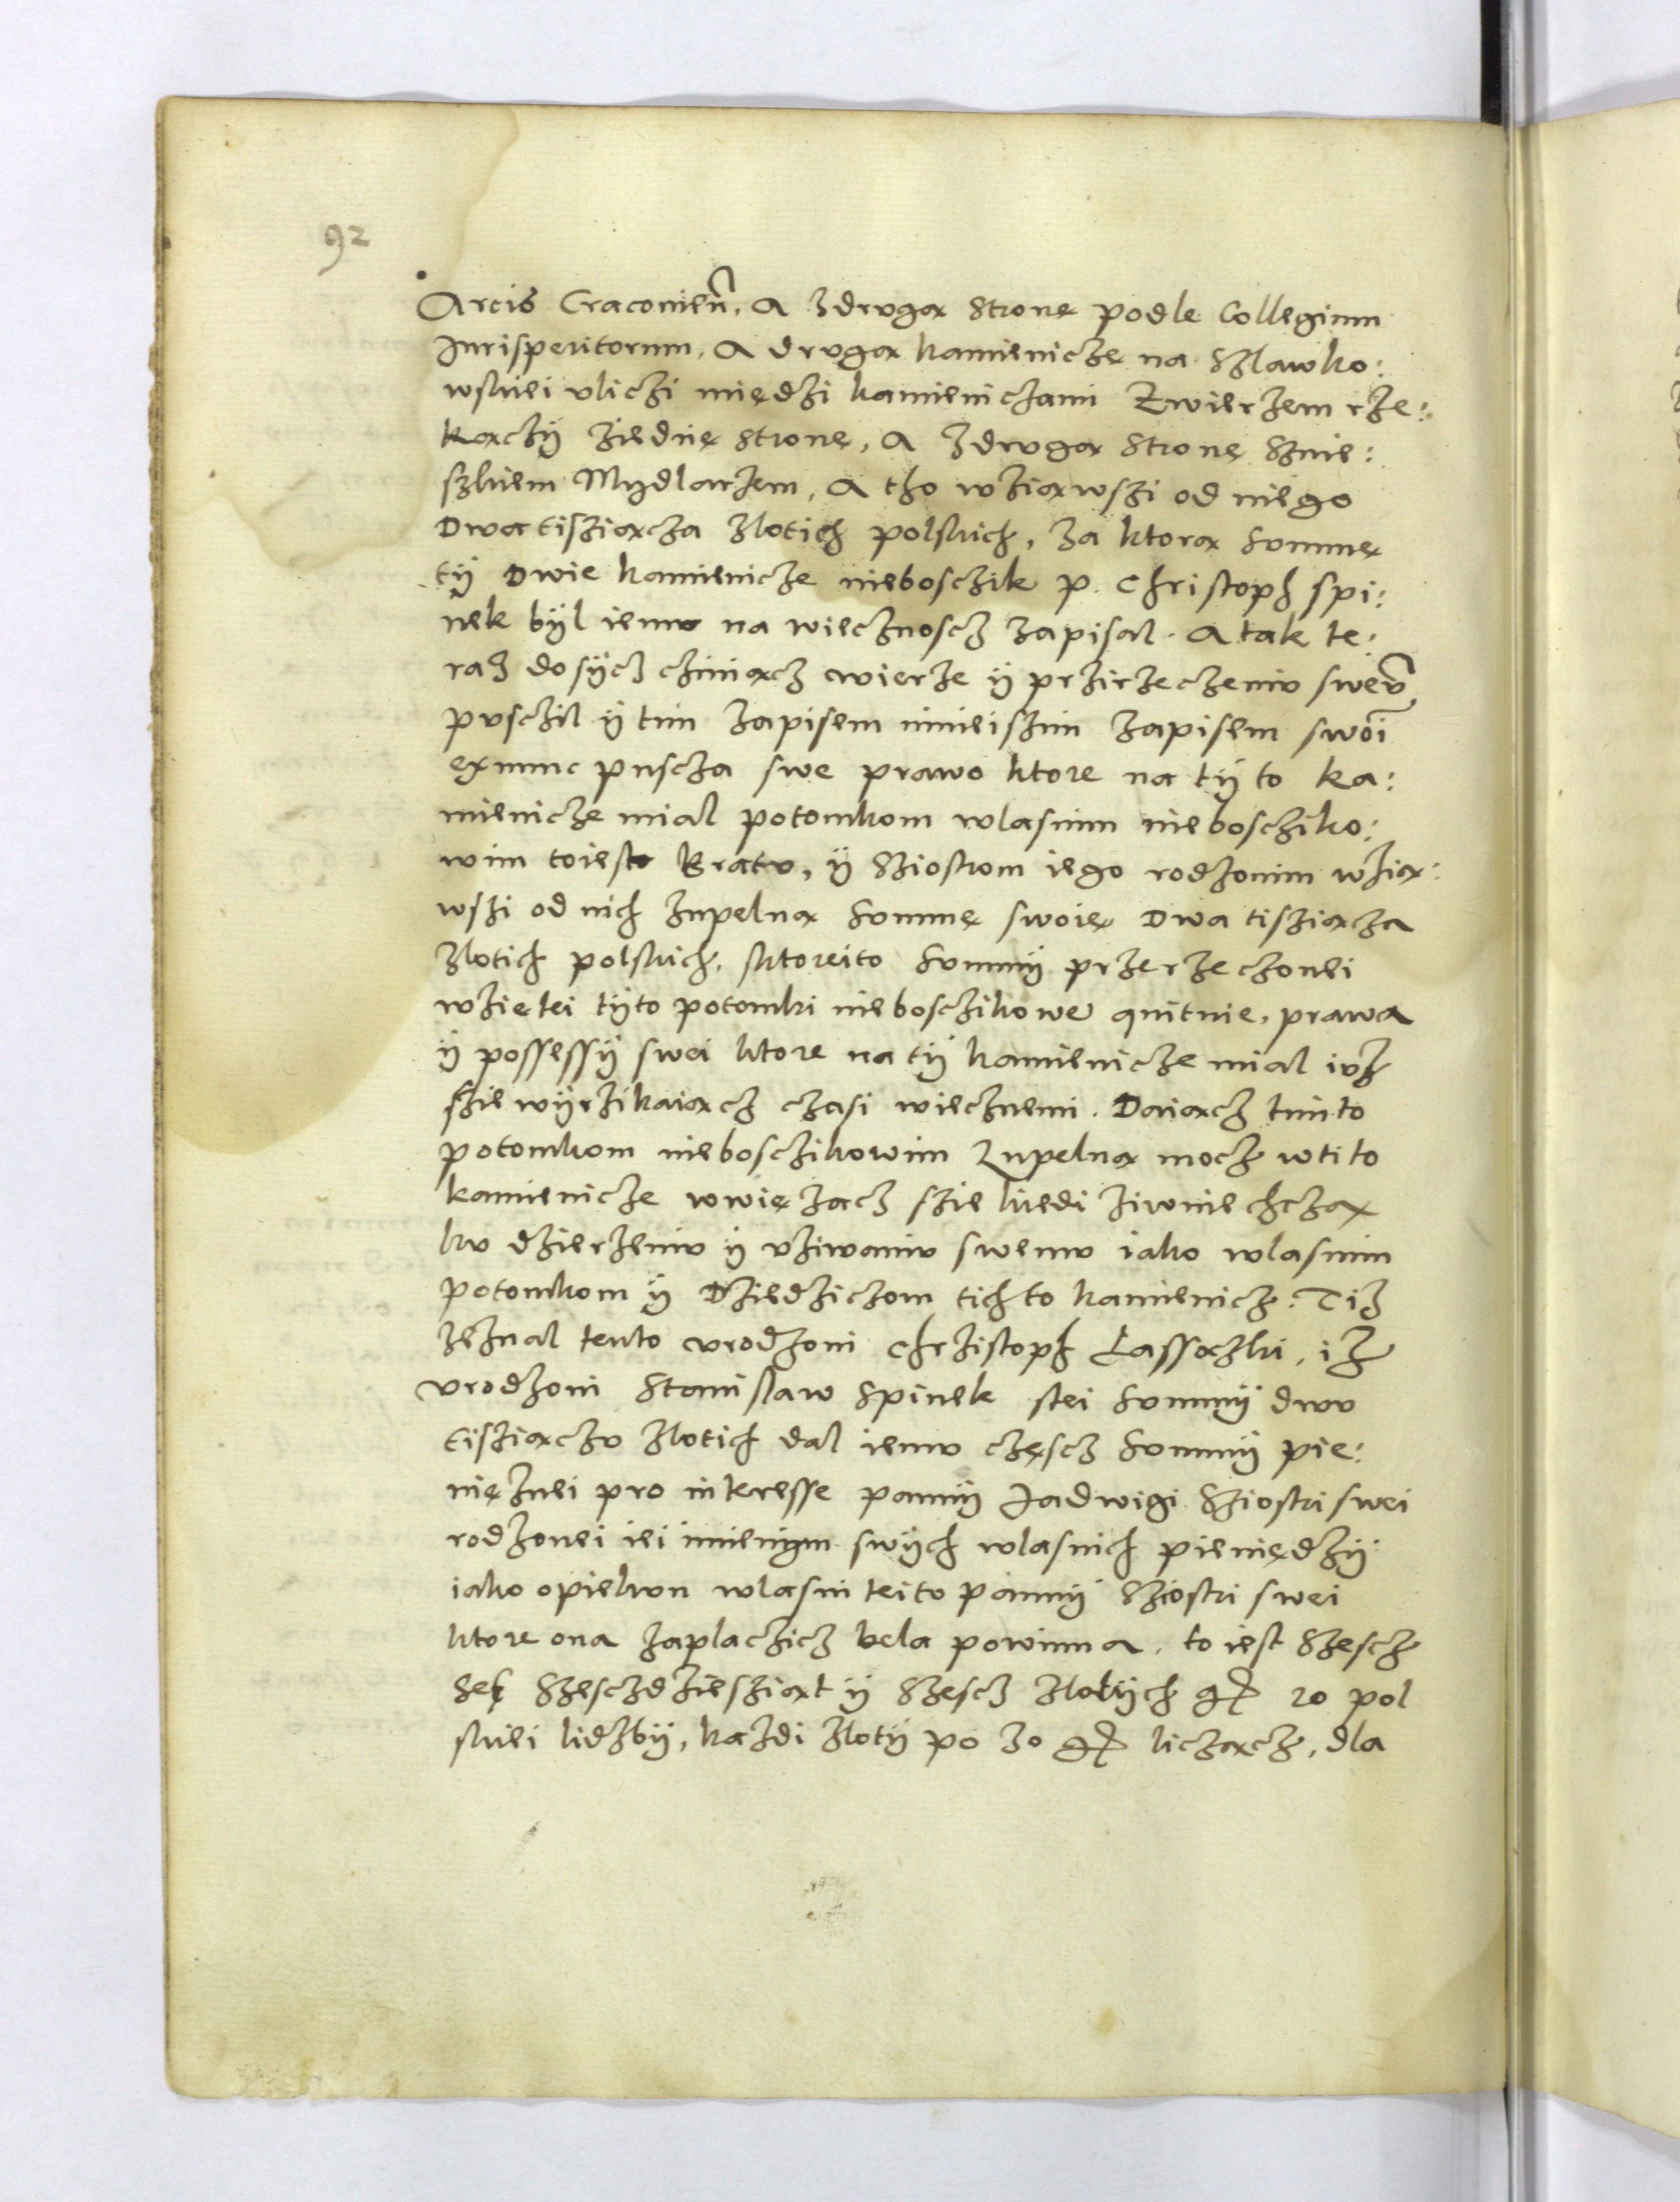 92
Arcis Cracouien̄, A zdruga strone podle Collegium
Jurisperitorum, A druga kamienicze na Szlawko:
wskiei vliczi międzi kamieniczami Zwierzem rze:
kaczÿ ziednę stronę, A zdruga stronę Sznie:
szkiem Mydlarzem, A tho wziawszi od niego
Dwa tisziacza zlotich polskich, za ktora summę
tÿ Dwie kamienicze nieboszczik p. Christoph spi:
nek bÿl iemu na wiecznoscz zapisal. A tak te:
raz dosÿcz cziniacz wierze ÿ przirzeczeniu sweū
pusczil ÿ tim zapisem ninieiszim zapisem swoī
exnunc puscza swe prawo ktore na tÿ to ka:
mienicze mial potomkom wlasnim nieboscziko:
wim toiest Bratu, ÿ Sziostrom iego rodzonim wzia:
wszi od nich zupelna summę swoię Dwa tisziacza
zlotich polskich, ktoreito summÿ przerzeczonei
wziętei tÿto potomki nieboscziko­we quituie, prawa
ÿ possessÿ swei ktore na tÿ kamienicze mial iuz
szie wÿrzikaiacz czasi wiecznemi. Daiacz timto
potomkom nieboscz­ikowim Zupelna mocz wtito
kamienicze wwięzacz szie kiedi ziwnie chcza
ku dzierzeniu ÿ vziwaniu swemu iako wlasnim
potomkom ÿ Dziedziczom tichto kamienicz. Tiz
zeznal tento vrodzoni Chrzistoph Lassoczki, iz
vrodzoni Stanislaw Spinek stei summÿ dwu
tisziaczu zlotich dal iemu częscz summÿ pie:
nięznei pro interesse pannÿ Jadwigi Sziostri swei
rodzonei iei imienym swÿch wlasnich pieniędzÿ
iako opiekun wlasni teito pannÿ Sziostri swei
ktore ona zaplaczicz bela powinna, to iest Szescz
set Szesczdziesziat ÿ Szescz zlotÿch gr 20 pol
skiei lidzbÿ, kazdi zlotÿ po 30 gr liczacz, dla